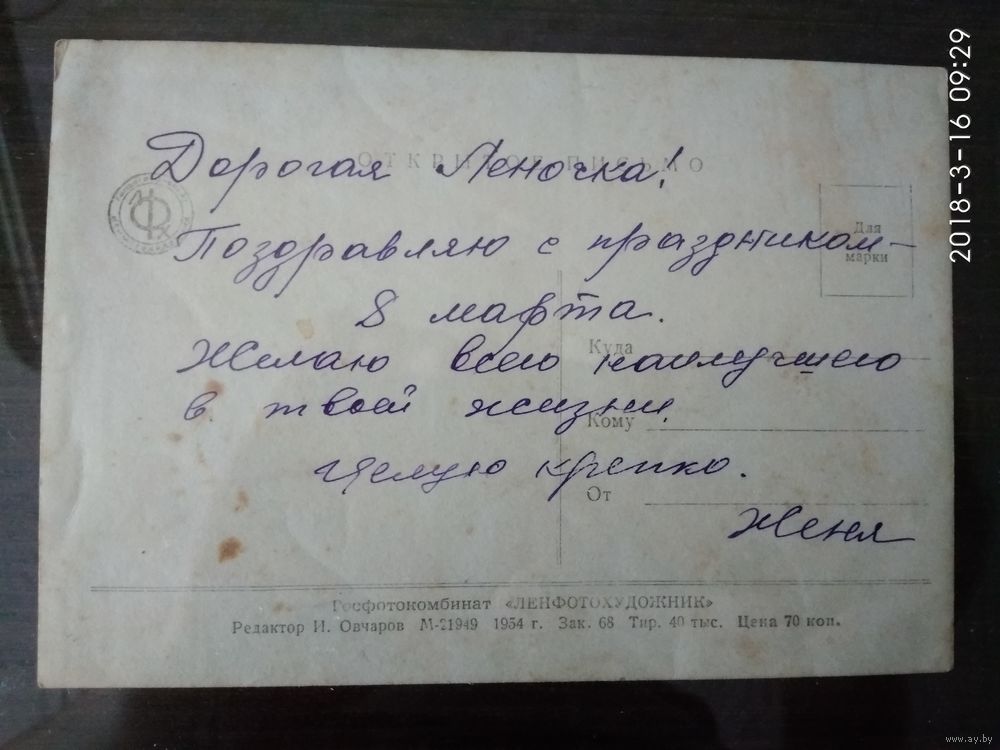 ОТКРЫТОЕ ПИСЬМО
Дорогая Леночка!
Поздравляю с праздником –
8 марта.
Желаю всего наилучшего
в твоей жизни.
Целую крепко.
Женя
Для
марки
Куда
Кому
От
Госфотокомбинат «ЛЕНФОТОХУДОЖНИК»
Редактор И. Овчаров М-21949 1954 г. Зак. 68 Тир. 40 тыс. Цена 70 коп.
2018-3-16 09:29
www.ay.by